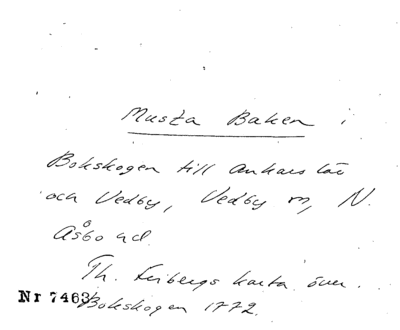 Musta Baken i
Bokskogen till Ankarslöv
och Vedby, Vedby sn, N.
Åsbo hd.
Th. Fribergs karta över
Nr 7463 Bokskogen 1772.